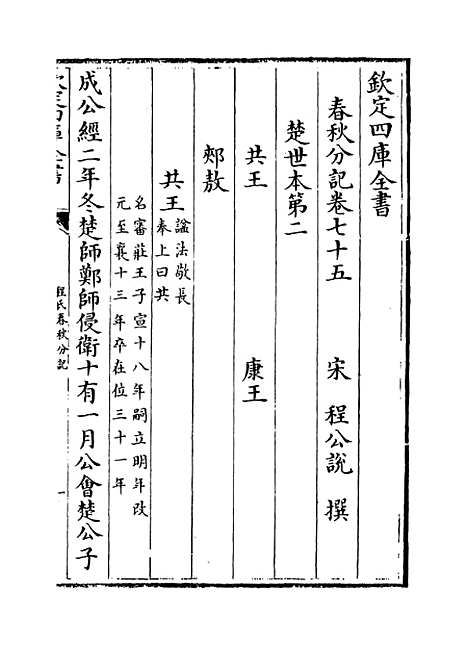 欽定四庫全書
春秋分記卷七十五　宋　程公說　撰
楚世本第二
共王　康王
郟敖
共王　諡法敬長
奉上曰共
名審莊王子宣十八年嗣立明年改
元至襄十三年卒在位三十一年
成公經二年冬楚師鄭師侵衛十有一月公會楚公子
程氏春秋分記
一